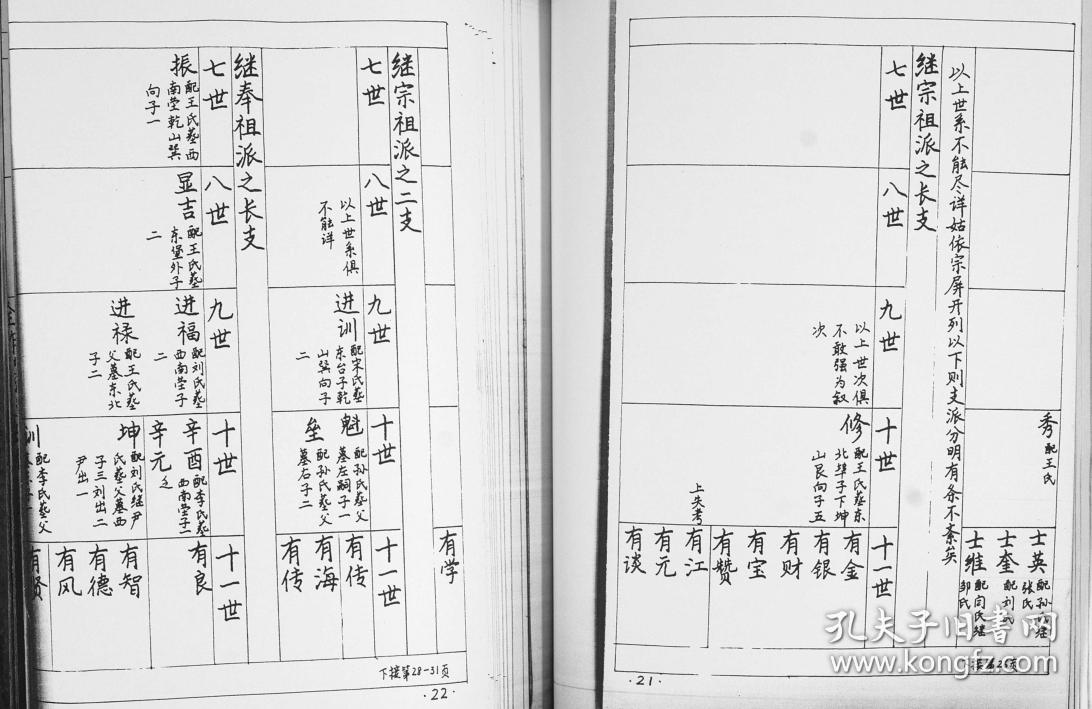 秀
配王氏
士英
配孙氏继
张氏
士奎
配刘氏
士维
配闫氏继
邹氏
以上世系不能尽详姑依宗屏开列以下则支派分明有条不紊矣
继宗祖派之长支
七世
八世
九世
十世
十一世
以上世次俱
不敢强为叙
次
修
配王氏墓东
北垾子下坤
山艮向子五
上失考
有金
有银
有财
有宝
有赞
有江
有元
有谈
·21·
有学
继宗祖派之二支
七世
八世
九世
十世
十一世
以上世系俱
不能详
进训
配宋氏墓
东台子乾
山巽向子
二
魁
配孙氏墓父
墓左嗣子一
垒
配孙氏墓父
墓右子二
有传
有海
有传
继奉祖派之长支
七世
八世
九世
十世
十一世
振
配王氏墓西
南茔乾山巽
向子一
显吉
配王氏墓
东堡外子
二
进福
配刘氏墓
西南茔子
二
进禄
配王氏墓
父墓东北
子二
辛酉
配李氏墓
西南茔子一
辛元
乏
坤
配刘氏继尹
氏墓父墓西
子三刘出二
尹出一
训
配李氏墓父
有良
有智
有德
有风
有贤
下接第28-31页
·22·
孔夫子旧书网
www.kongfz.com